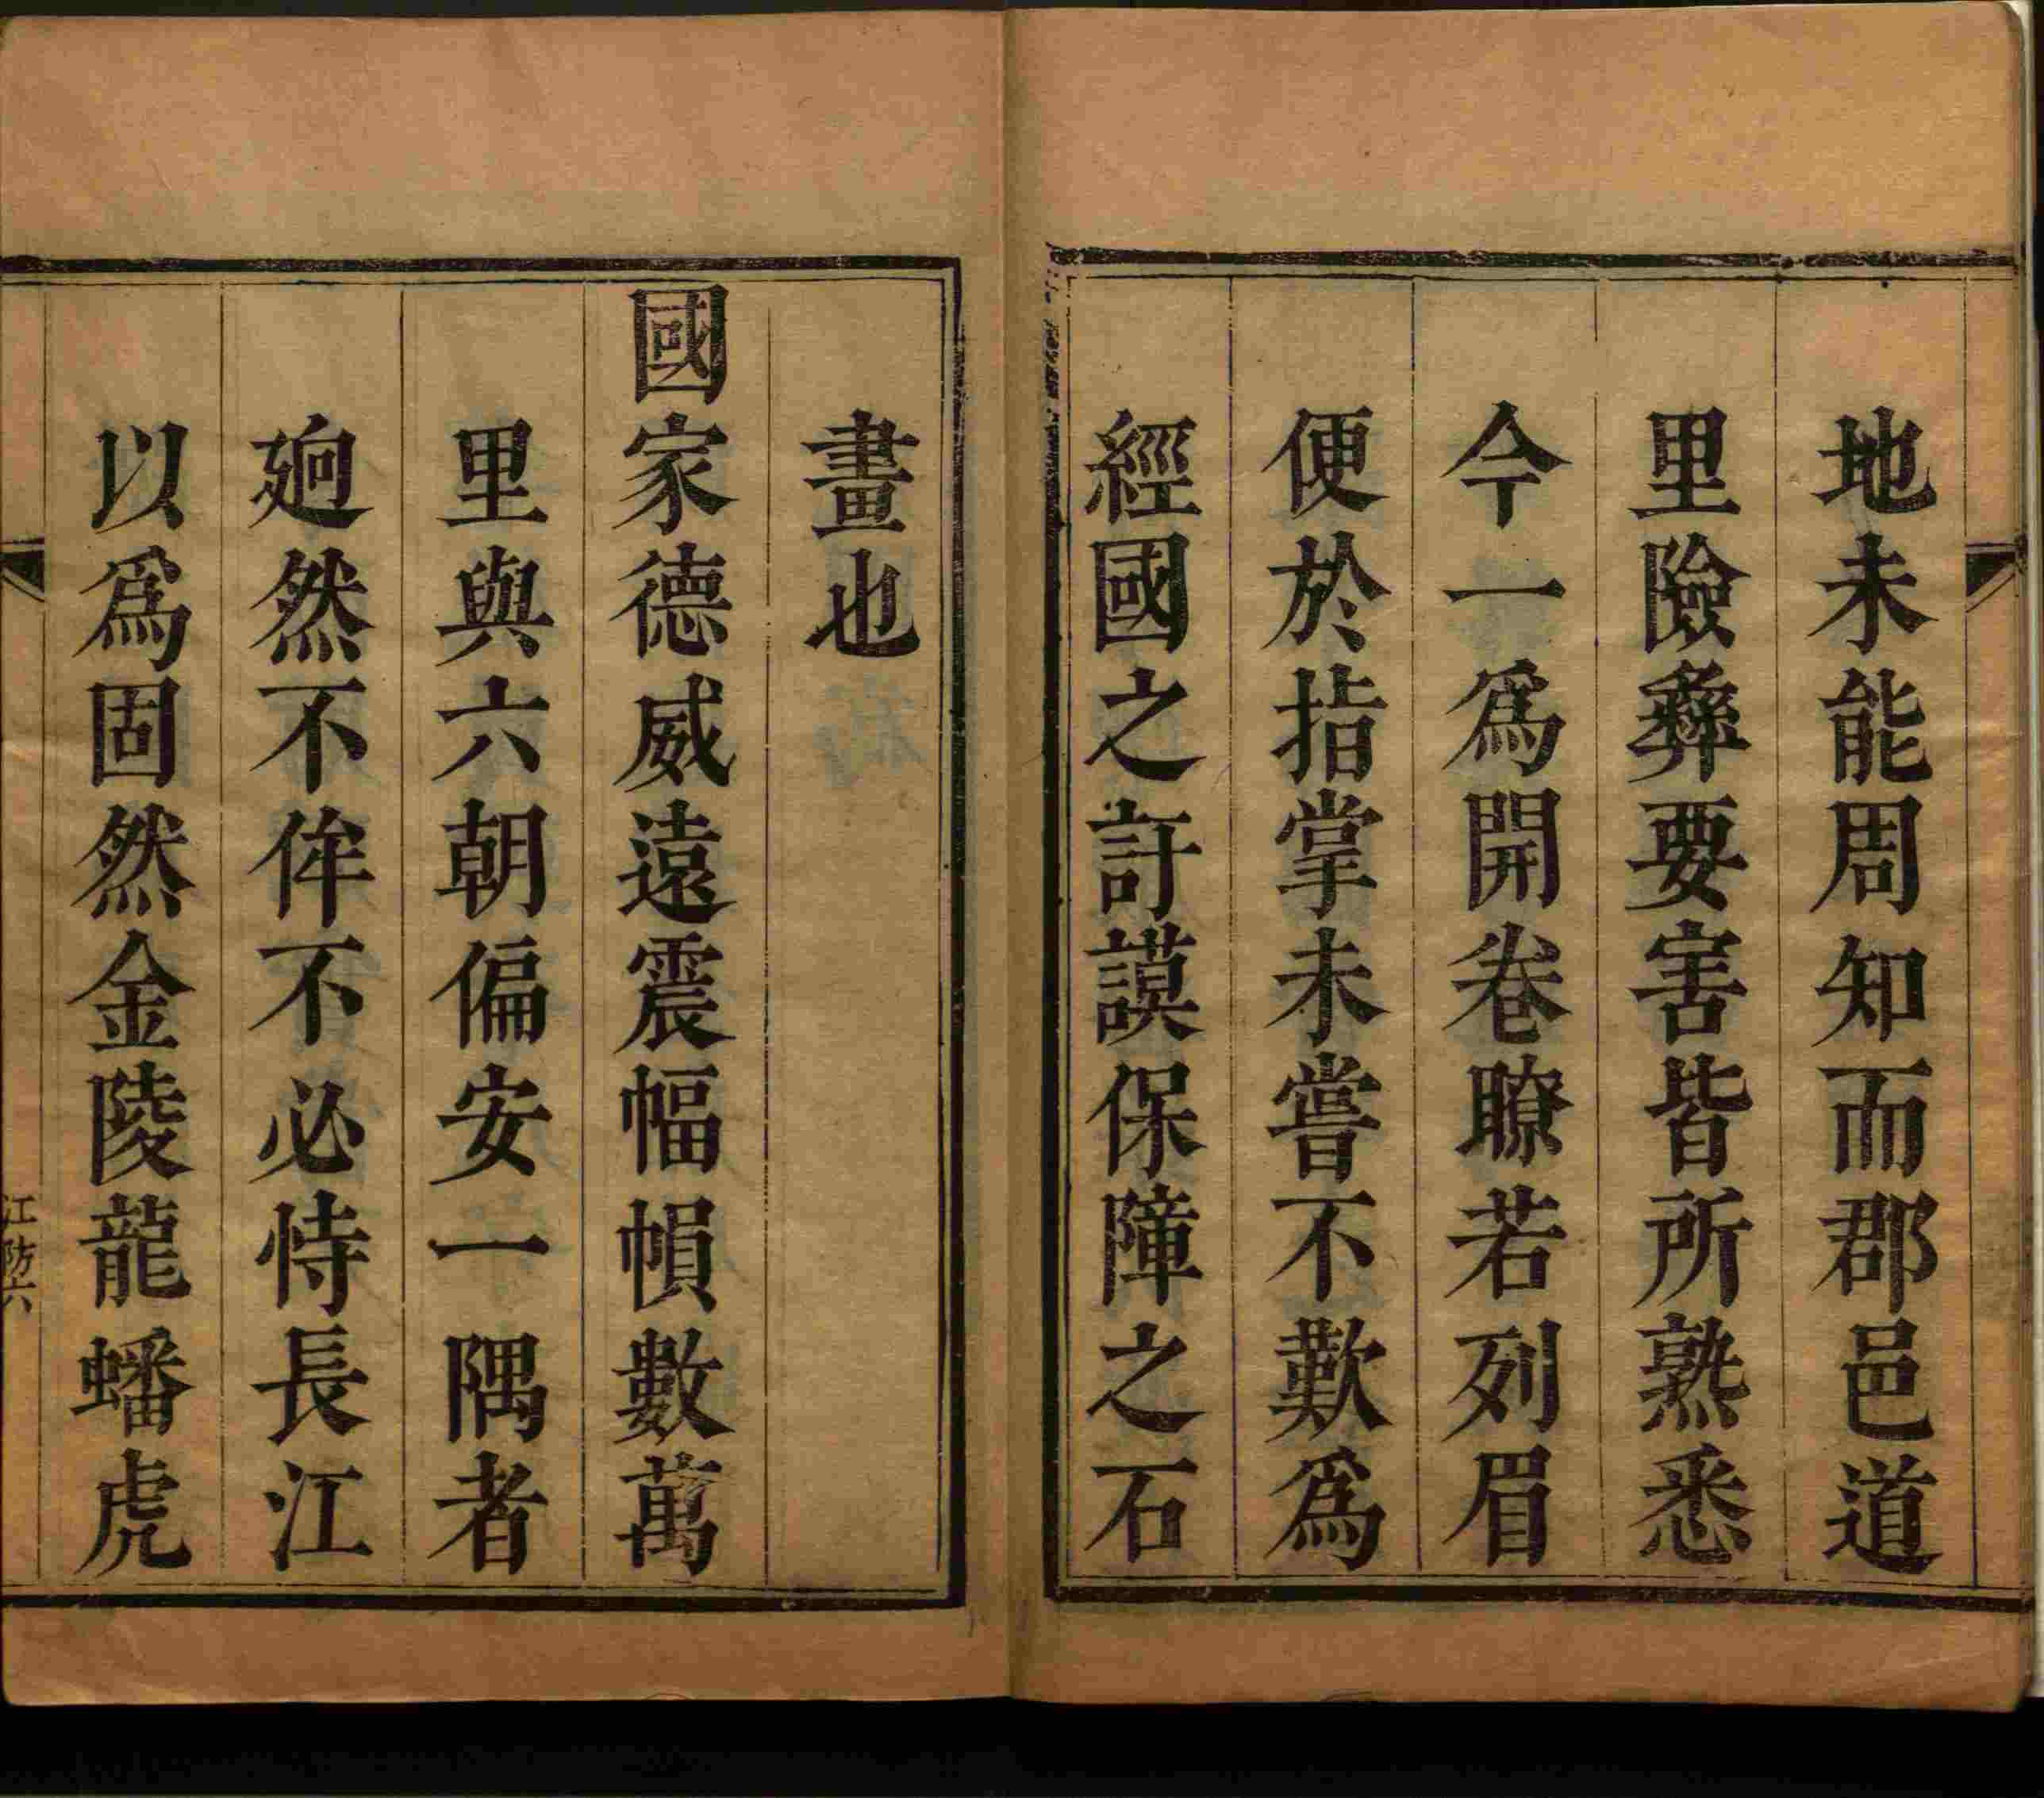 地未能周知而郡邑道
里險彝要害皆所熟悉
今一爲開卷瞭若列眉
便於指掌未嘗不歎爲
經國之訏謨保障之石
畫也
國家德威遠震幅幀數萬
里與六朝偏安一隅者
逈然不侔不必恃長江
以爲固然金陵龍蟠虎
江防六